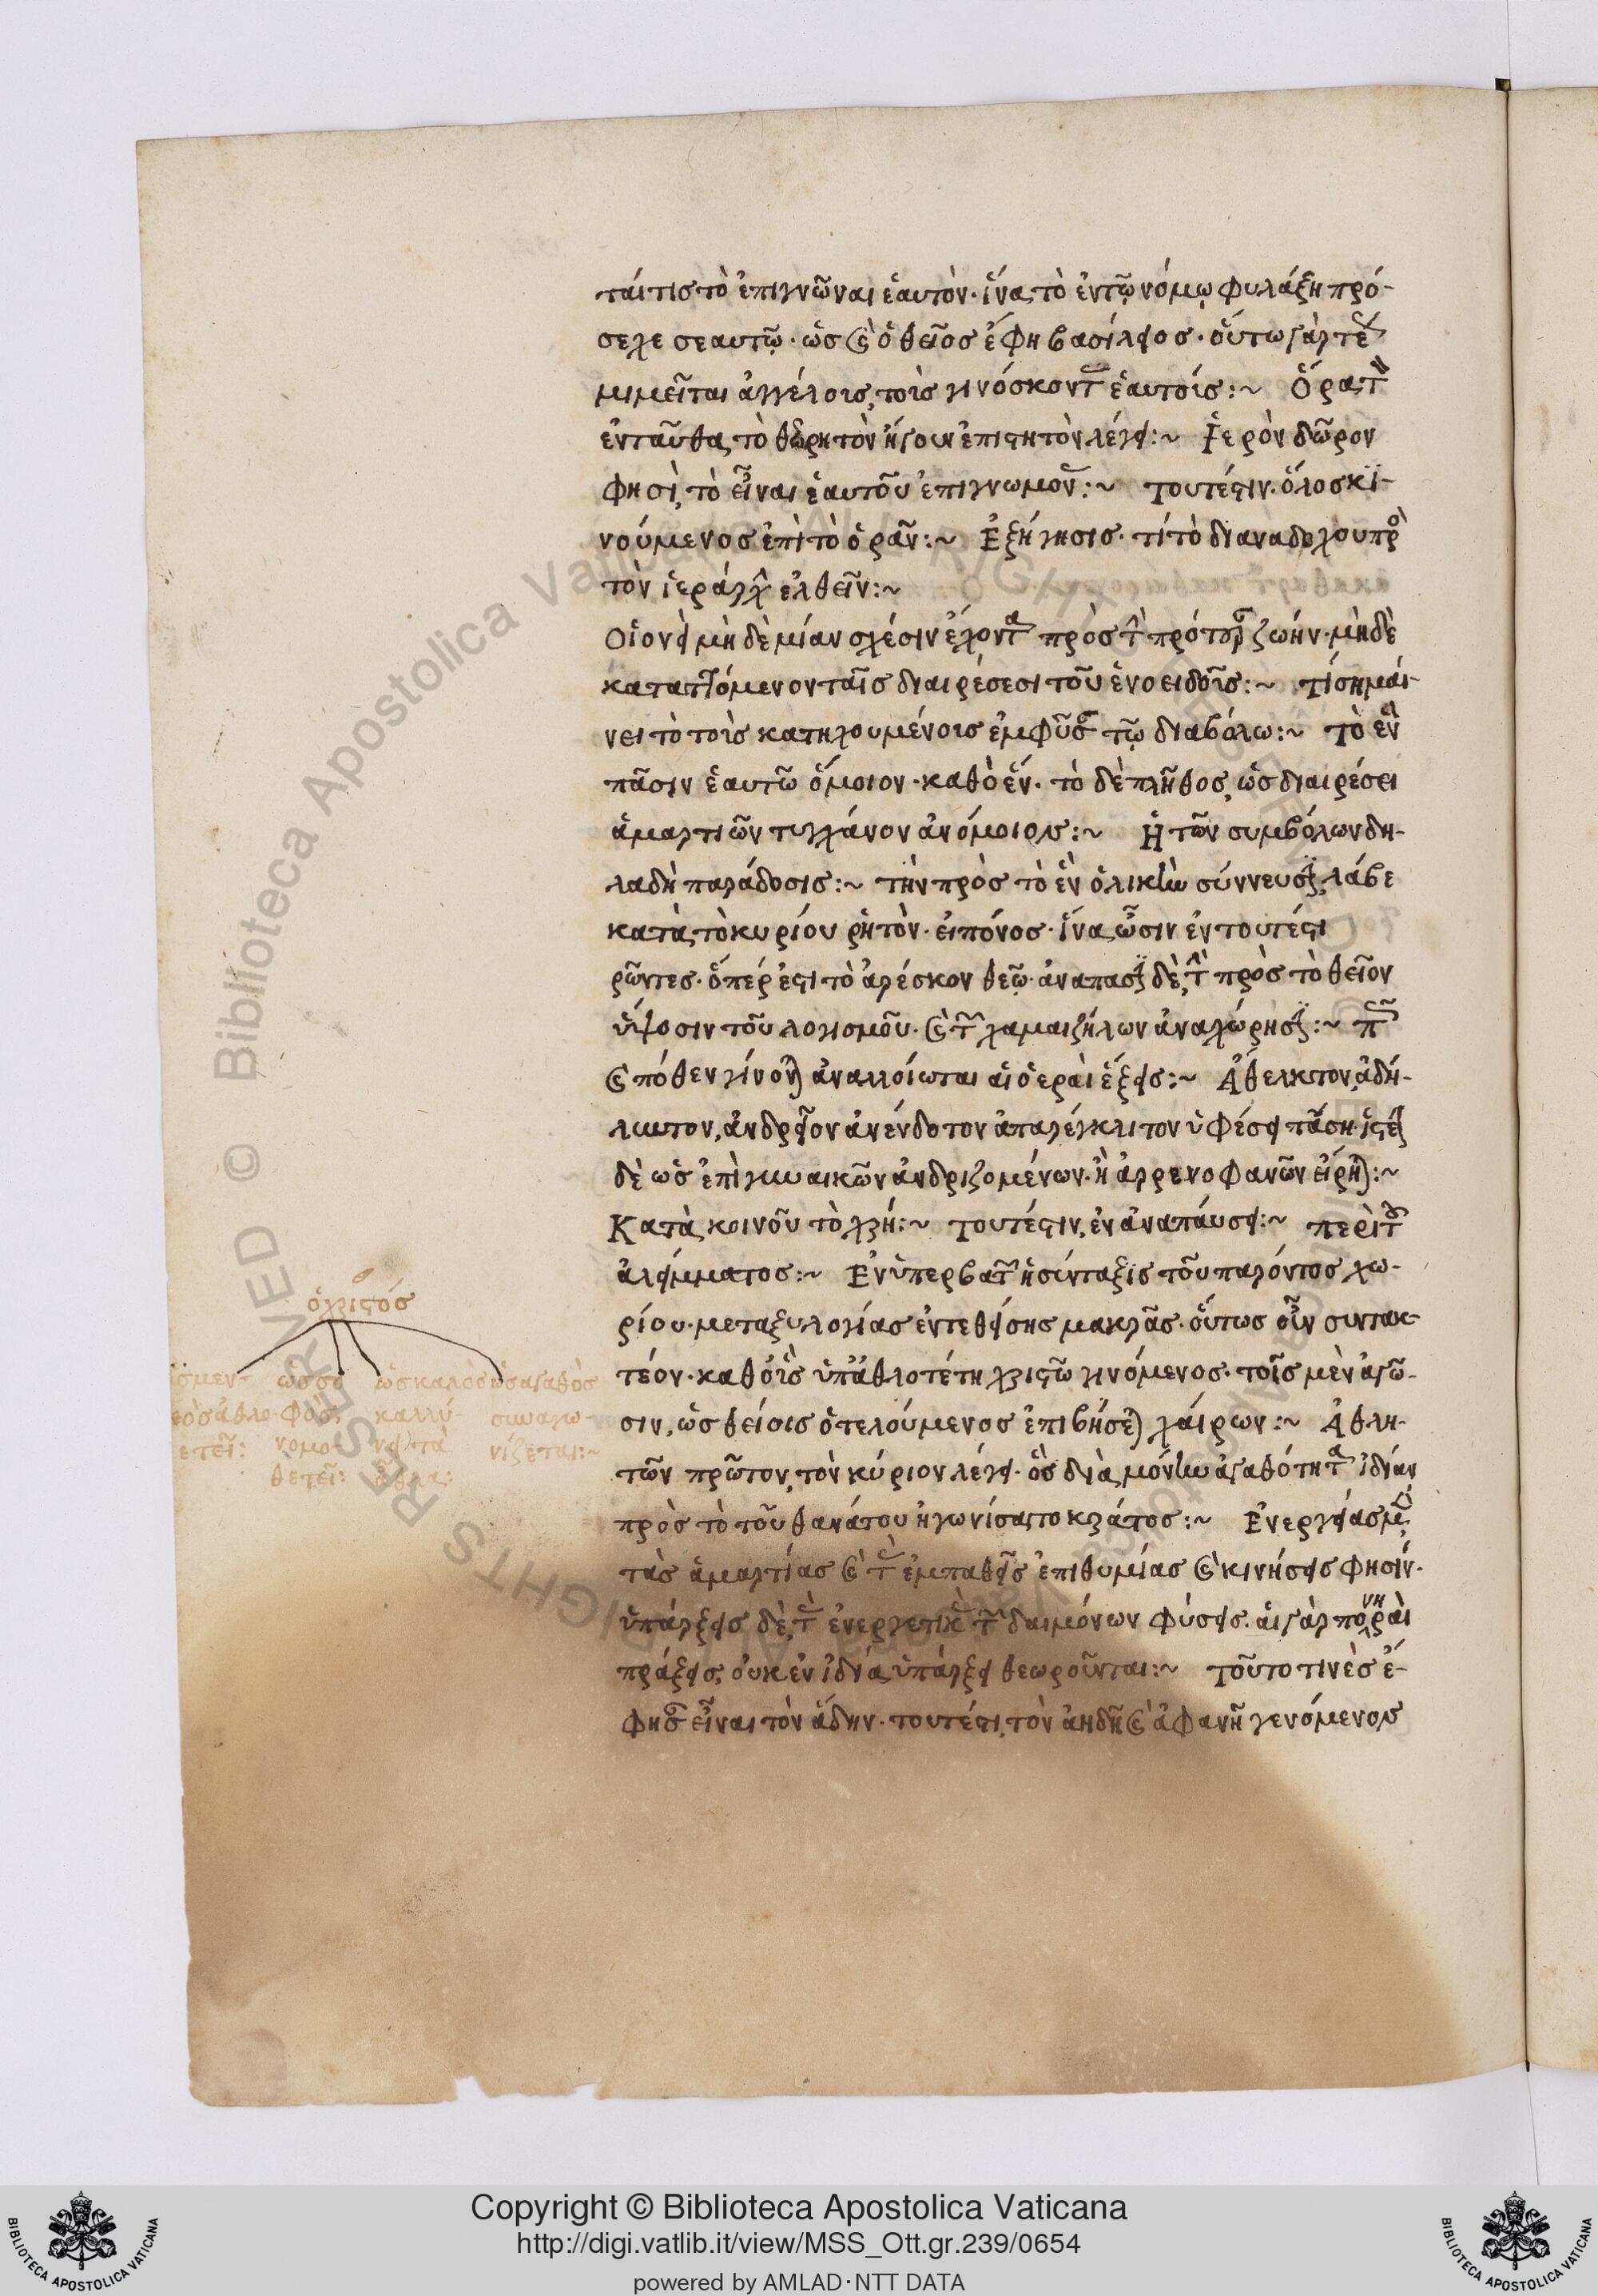 ταί τις τὸ ἐπιγνῶναι ἑαυτὸν· ἵνα τὸ ἐν τῷ νόμῳ φυλάξη πρό-
σεχε σεαυτῷ· ὡς καὶ ὁ θεῖος ἔφη βασίλειος· οὕτω γὰρ
μιμεῖται ἀγγέλοις, τοῖς γινόσκοντ ἑαυτοίς :~ Ὅρα
ἐνταῦθα τὸ θεωρητὸν ἤγουν ἐπιστητὸν λέγει :~ Ἱερὸν δῶρον
φησὶ, τὸ εἶναι ἑαυτοῦ ἐπιγνωμον :~ τουτέστιν· ὅλος κι-
νούμενος ἐπὶ τὸ ὁρᾶν :~ Ἐξήγησις· τί τὸ δι ἀναδόχου πρ
τὸν ἱεράρχ ἐλθεῖν :~
Οἱονεὶ μὴ δὲ μίαν σχέσιν ἔχοντα πρὸς τ προτερ ζωήν· μὴ δὲ
καταπτόμενον ταῖς διαιρέσεσι τοῦ ἑνοειδοῖς :~ τί σημαί-
νει τὸ τοῖς κατηχουμένοις ἐμφυσ τῷ διαβόλω :~ τὸ ἓν
πᾶσιν ἑαυτῶ ὅμοιον· καθὸ ἕν· τὸ δὲ πλῆθος, ὡς διαιρέσει
ἁμαρτιῶν τυγχάνον ἀνόμοιον :~ Ἡ τῶν συμβόλων δη-
λαδὴ παράδοσις :~ τὴν πρὸς τὸ ἓν ὁλικὴν σύννευσιν, λάβε
κατὰ τὸ κυρίου ῥητὸν· εἰπόνος· ἵνα ὦσιν ἐν τουτέστι
ρῶντες· ὅπερ ἐστι τὸ ἀρέσκον θεῷ· ἀνάπασιν δὲ, τ πρὸς τὸ θεῖον
ὕψοσιν τοῦ λογισμοῦ· καὶ τ χαμαιζήλων ἀναχώρησιν :~ π
καὶ πόθεν γίνοντ ἀναλλοίωται αἱ ἱεραὶ ἕξεις :~ Ἄθελκτον, ἀδή-
λωτον, ἀνδρεῖον ἀνένδοτον ἀπαρέγκλιτον ὑφέσει πάση·
δὲ ὡς ἐπὶ γυναικῶν ἀνδριζομένων· ἢ ἀρρενοφανῶν εἴρητ :~
Κατὰ κοινοῦ τὸ χρή :~ τουτέστιν, ἐν ἀναπάυσει :~ περὶ τ
ἀλείμματος :~ Ἐν ὑπερβατ ἡ σύνταξις τοῦ παρόντος χω-
ρίου· μεταξυλογίας ἐντεθείσης μακρᾶς· οὕτως οὖν συντακ-
τέον· καθ οἷς ὑπ ἀθλοτέτη χριστῶ γινόμενος· τοῖς μὲν ἀγῶ-
σιν, ὡς θείσις ὁ τελούμενος ἐπιβήσετ χαίρων :~ Ἀθλη-
τῶν πρῶτον, τὸν κύριον λέγει· ὃς διὰ μόνην ἀγαθότητα ἰδίαν
πρὸς τὸ τοῦ θανάτου ἠγωνίσατο κράτος :~ Ἐνεργείας μ
τὰς ἁμαρτίας καὶ τ ἐμπαθεῖς ἐπιθυμίας καὶ κινήσεις φησίν·
ὑπάρξεις δὲ, τ ἐνεργετικ τ δαιμόνων φύσεις. αἱ γὰρ πονηραὶ
πράξεις, οὐκ ἐν ἰδία ὑπάρξει θεωροῦνται :~ τοῦτο τινὲς ἔ-
φησ εἶναι τὸν ἅδην· τουτέστι, τὸν ἀηδῆ καὶ ἀφανῆ γενόμενον
ὁ χριστός
ὡς σο
φὸς,
νομο-
θετεῖ:
ὡς καλὸς
καλλύ-
νει τὰ
ἔθλα:
ὡς ἀγαθὸς
συναγω-
νίζεται :~
Copyright © Biblioteca Apostolica Vaticana
http://digi.vatlib.it/view/MSS_Ott.gr.239/0654
powered by AMLAD·NTT DATA
BIBLIOTECA APOSTOLICA VATICANA
BIBLIOTECA APOSTOLICA VATICANA